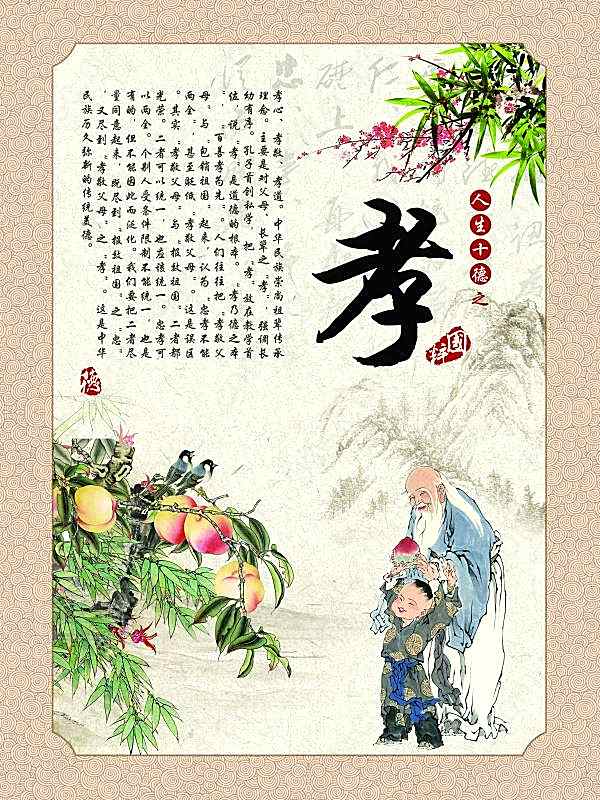 人生十德之
孝
國粹
孝心，孝敬，孝道。中华民族崇尚祖辈传承
理念。主要是对父母、长辈之“孝”，强调长
幼有序。孔子首创私学，把“孝”放在教学首
位，说“孝”是道德的根本。“孝乃德之本
”，“百善孝为先”。人们往往把“孝敬父
母”与“包销祖国”起来，认为“忠孝不能
两全”，甚至贬低“孝敬父母”。这是误区
。其实，“孝敬父母”与“报效祖国”二者都
光荣。二者可以统一，也应该统一。忠孝可
以两全。个别人受条件限制不能统一，也是
有的，但不能因此而泛化。我们要把二者尽
量同意起来，既尽到“报效祖国”之“忠”
，又尽到“孝敬父母”之“孝”。这是中华
民族历久弥新的传统美德。
德